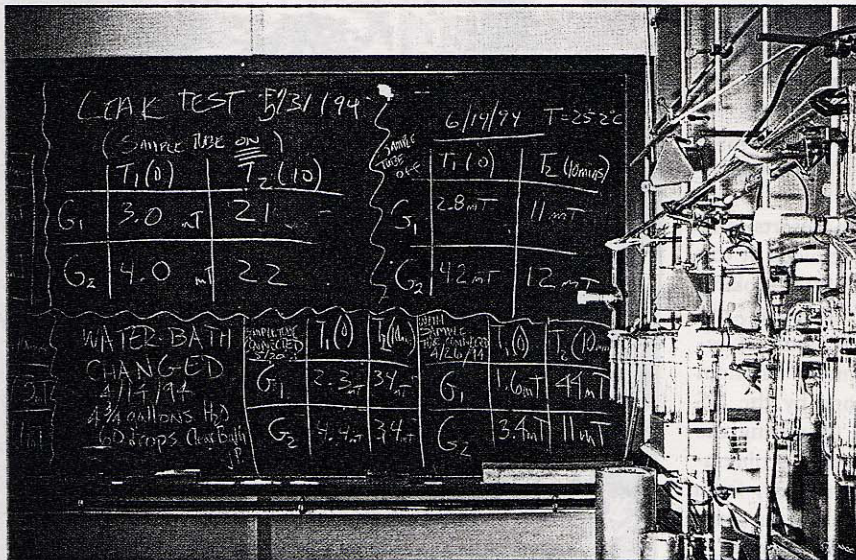 LEAK TEST 5/31/94
(SAMPLE TUBE ON)
T1(0) T2(10)
G1 3.0 mT 21
G2 4.0 mT 22
6/14/94 T=25.2°C
SAMPLE TUBE OFF
T1(0) T2(10mins)
G1 2.8mT 11mT
G2 42mT 12mT
WATER BATH
CHANGED
4/14/94
4 3/4 gallons H2O
60 drops Clear Bath
JP
SAMPLE TUBE
CONNECTED
T1(0) T2(10min)
G1 2.3mT 34mT
G2 4.4mT 34mT
WITH
SAMPLE
TUBE CONNECTED
4/26/94
T1(0) T2(10min)
G1 1.6mT 44mT
G2 3.4mT 11mT